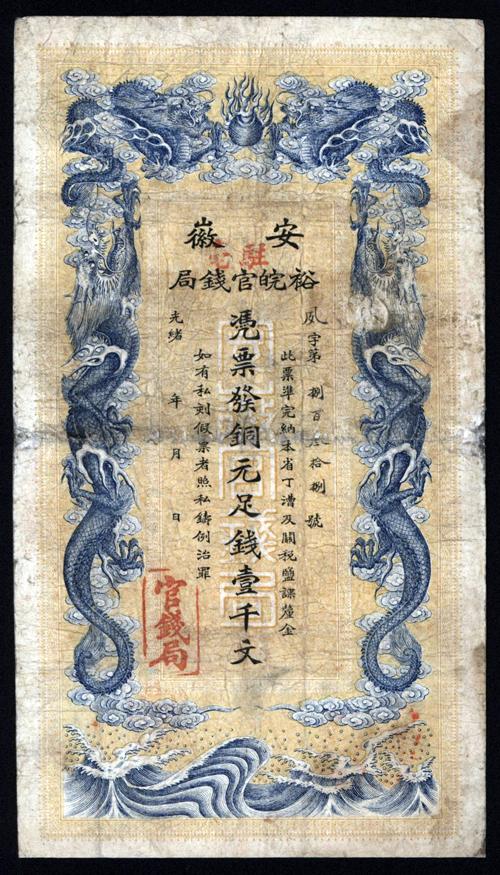 安徽
駐
裕皖官錢局
夙字第捌百叁拾捌號
此票準完納本省丁漕及關稅鹽課釐金
凴票發銅元足錢壹千文
如有私刻假票者照私鑄例治罪
光緒 年 月 日
官錢局